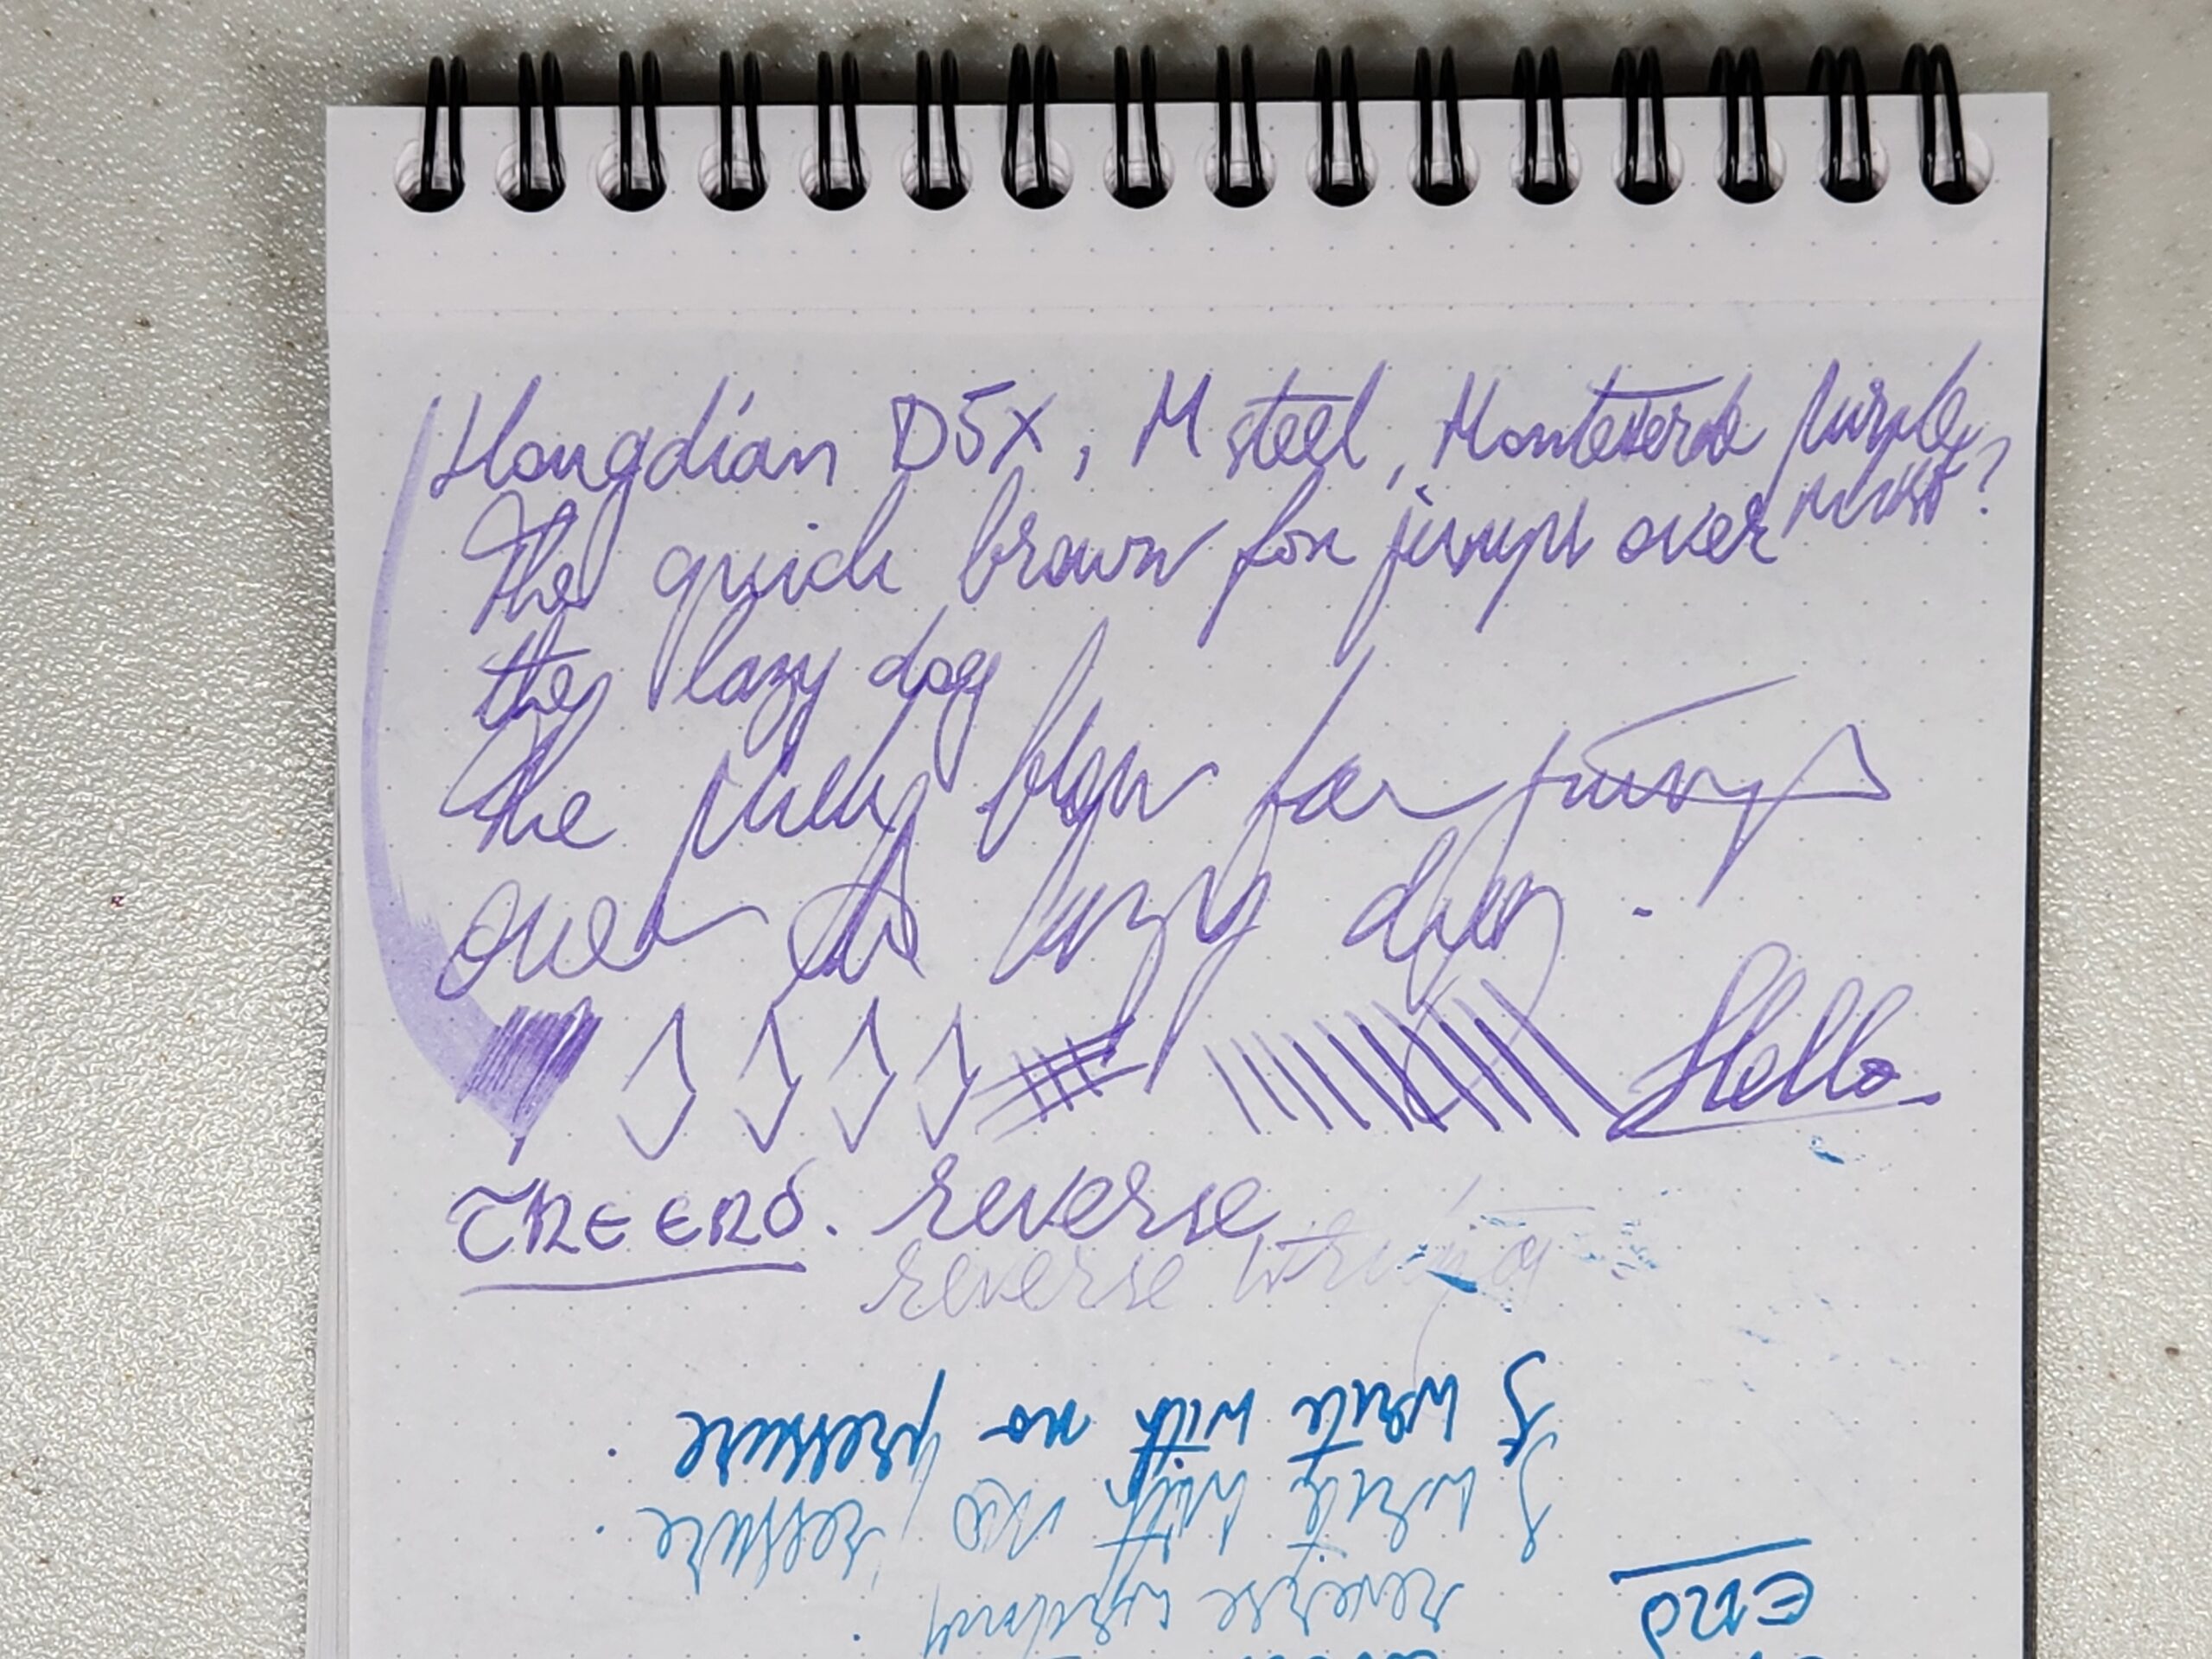 Hongdian D5X, M steel, Monteverde Purple
Mist?
The quick brown fox jumps over
the lazy dog
The jumps
over the lazy dog.
Hello
THE END. reverse
reverse writing
I write with no pressure.
I write with no pressure.
reverse writing.
END